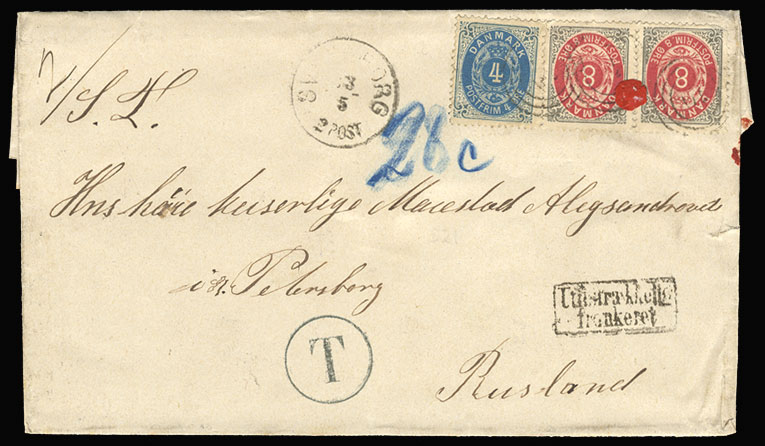 DANMARK
4
POSTFRIM. 4 ØRE
DANMARK
8
POSTFRIM. 8 ØRE
DANMARK
8
POSTFRIM. 8 ØRE
ORG
3
5
2 POST
26 c
Hns häie keiserlige Maiestad Alegsandrovet
i Petersberg
Utilstrækkelig
frankeret
T
Rusland